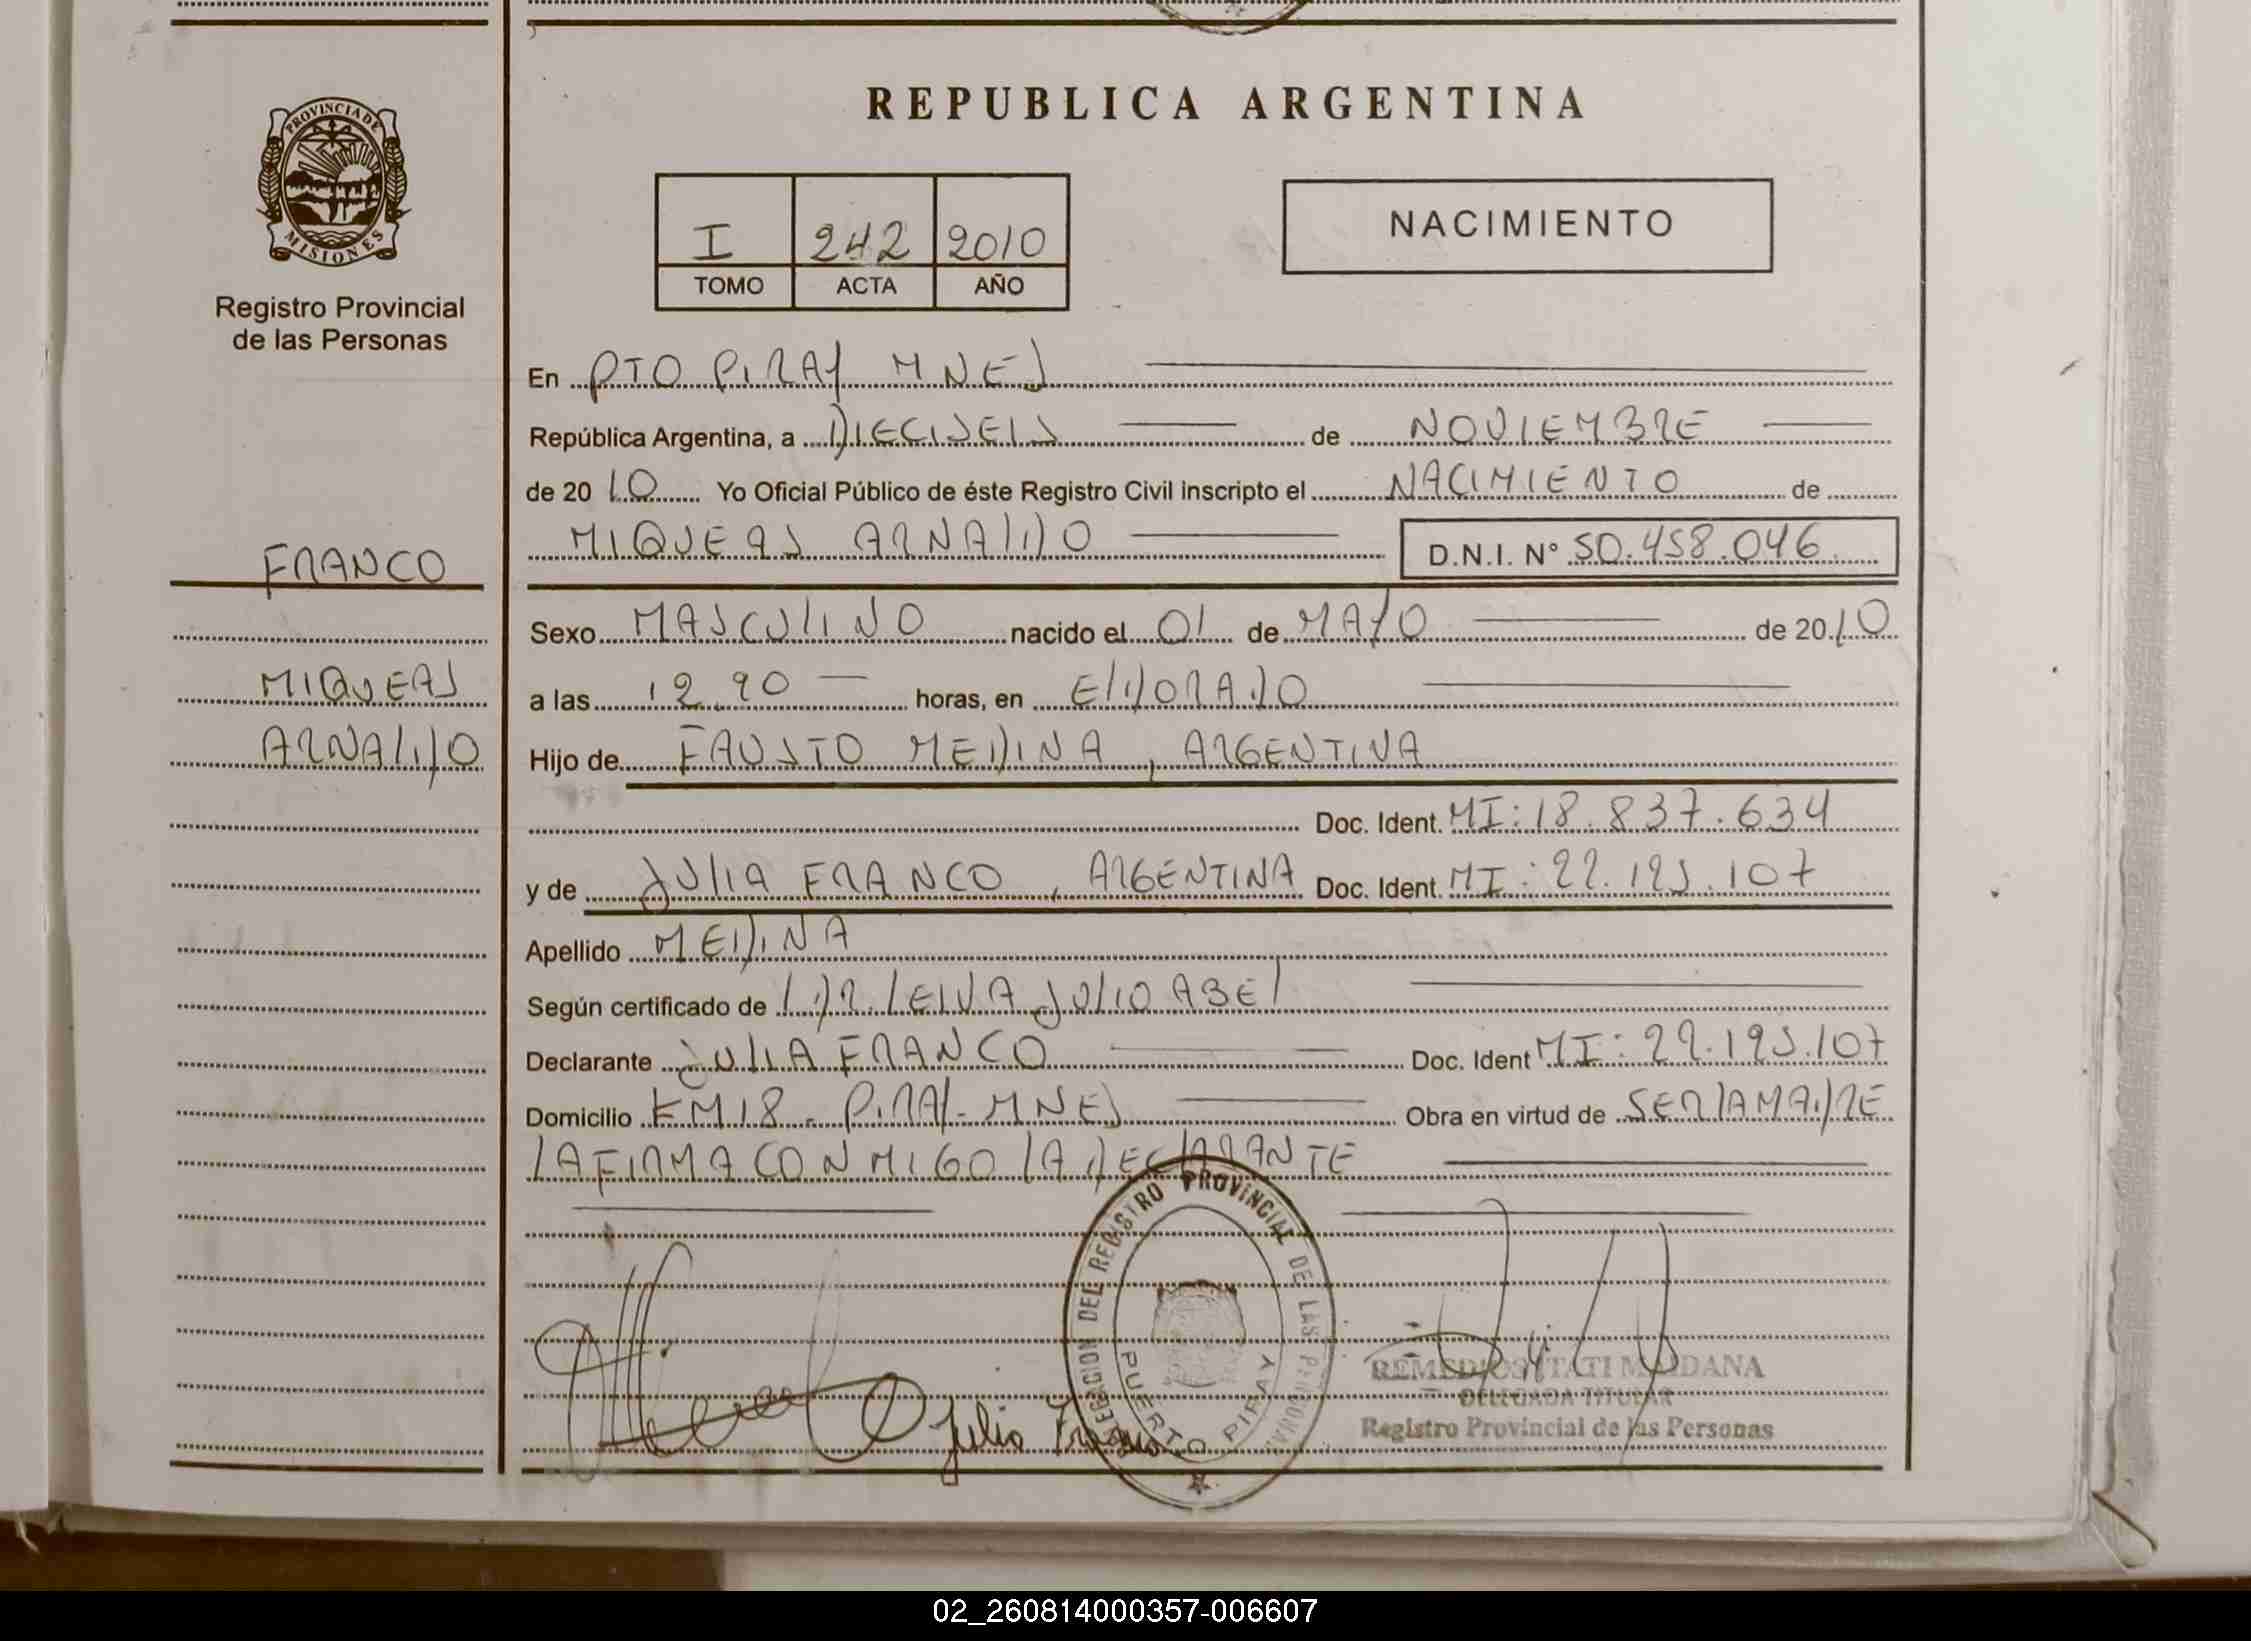 REPUBLICA ARGENTINA
PROVINCIA DE MISIONES
Registro Provincial
de las Personas
I 242 2010
TOMO ACTA AÑO
NACIMIENTO
En PTO PIRAY MNES
República Argentina, a DIECISEIS de NOVIEMBRE
de 20 10 Yo Oficial Público de éste Registro Civil inscripto el NACIMIENTO de
MIQUEAS ARNALDO D.N.I. N° 50.458.046
FRANCO
MIQUEAS
ARNALDO
Sexo MASCULINO nacido el 01 de MAYO de 20 10
a las 12.90 horas, en ELDORADO
Hijo de FAUSTO MEDINA, ARGENTINA
Doc. Ident. MI: 18.837.634
y de JULIA FRANCO, ARGENTINA Doc. Ident. MI: 22.195.107
Apellido MEDINA
Según certificado de DR. LEIVA JULIO ABEL
Declarante JULIA FRANCO Doc. Ident MI: 22.195.107
Domicilio KM 18 - PIRAY - MNES Obra en virtud de SER LA MADRE
LA FIRMA CONMIGO LA DECLARANTE
DELEGACION DEL REGISTRO PROVINCIAL DE LAS PERSONAS
PUERTO PIRAY
Julia Franco
REMEDIOS TATI MAIDANA
DELEGADA TITULAR
Registro Provincial de las Personas
02_260814000357-006607